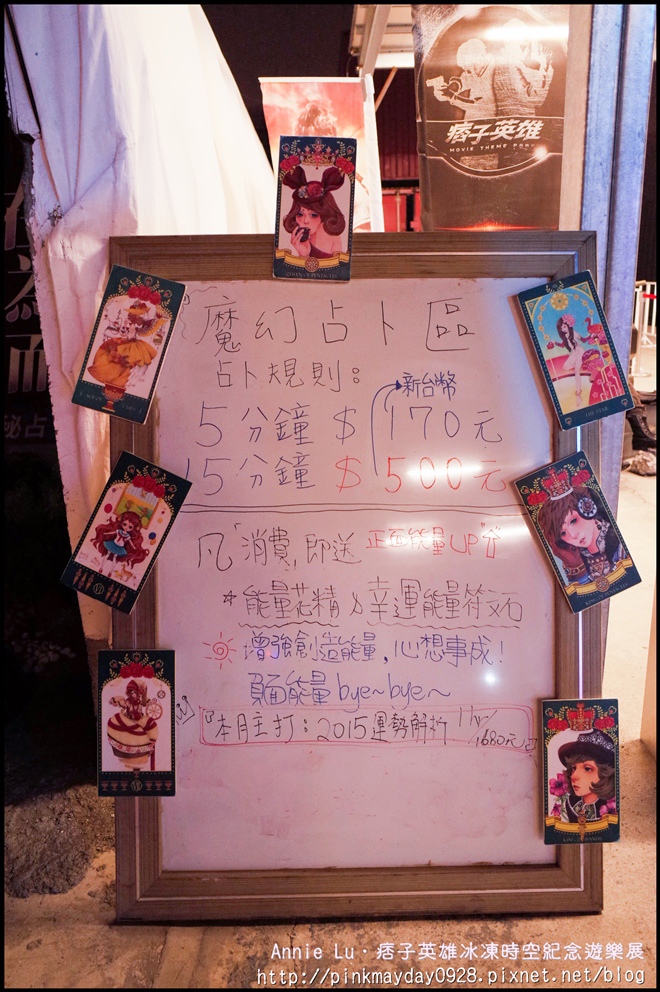 痞子英雄
MOVIE THEME PARK
魔幻占卜區
占卜規則：
新台幣
5分鐘 $ 170元
15分鐘 $ 500元
凡「消費」即送 正面能量UP
*能量花精&幸運能量符文石
增強創造能量，心想事成！
負面能量bye~bye~
『本月主打：2015運勢解析 1hr/1680元』
THE STAR
VI
VII
Annie Lu．痞子英雄冰凍時空紀念遊樂展
http://pinkmayday0928.pixnet.net/blog